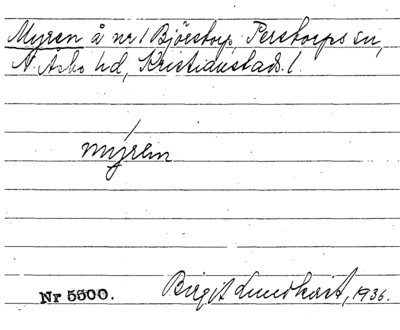 Myren å nr 1 Björstorp, Perstorps sn,
N. Åsbo hd, Kristianstads l.
mýren
Nr 5600. Birgit Lundkvist, 1936.